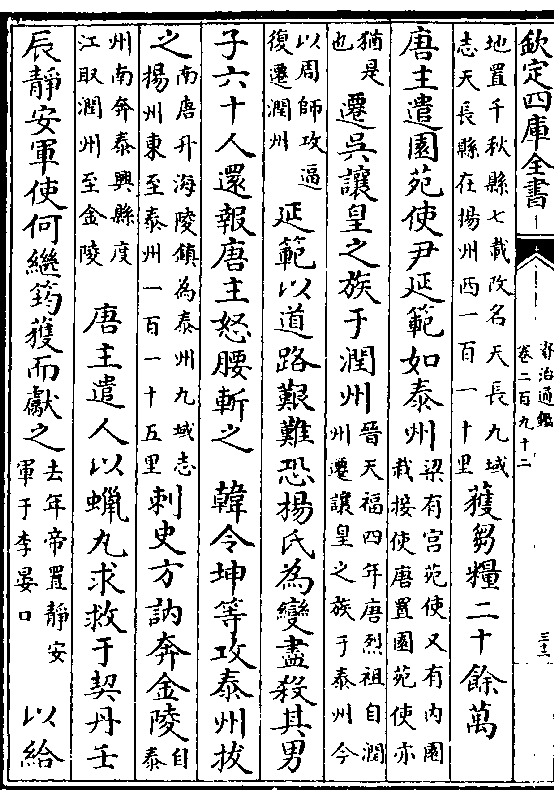 欽定四庫全書
資治通鑑
卷二百九十二
三十二
地置千秋縣七載改名天長九域
志天長縣在揚州西一百一十里
獲芻糧二十餘萬
唐主遣園苑使尹延範如泰州
梁有宮苑使又有內園
栽接使唐置園苑使亦
猶是
也
遷吳讓皇之族于潤州
晉天福四年唐烈祖自潤
州遷讓皇之族于泰州今
以周師攻逼
復遷潤州
延範以道路艱難恐楊氏為變盡殺其男
子六十人還報唐主怒腰斬之
韓令坤等攻泰州拔
之
南唐升海陵鎮為泰州九域志
揚州東至泰州一百一十五里
刺史方訥奔金陵
自泰
州南奔泰興縣度
江取潤州至金陵
唐主遣人以蠟丸求救于契丹壬
辰靜安軍使何繼筠獲而獻之
去年帝置靜安
軍于李晏口
以給